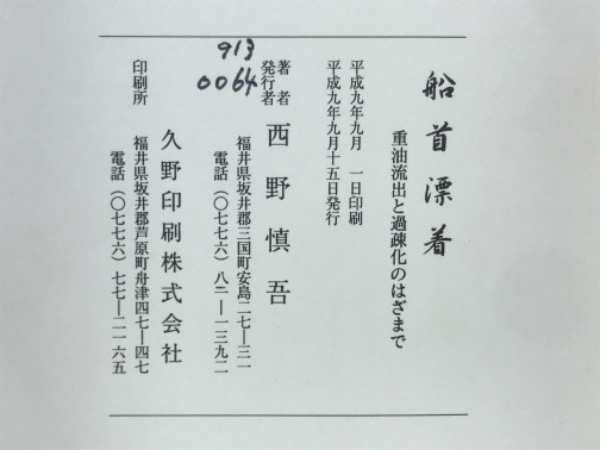 船首漂着
重油流出と過疎化のはざまで
平成九年九月　一日印刷
平成九年九月十五日発行
著者
発行者
西野慎吾
福井県坂井郡三国町安島二七―三一
電話（〇七七六）八二―一三九二
印刷所
久野印刷株式会社
福井県坂井郡芦原町舟津四七―四七
電話（〇七七六）七七―二一六五
913
0064